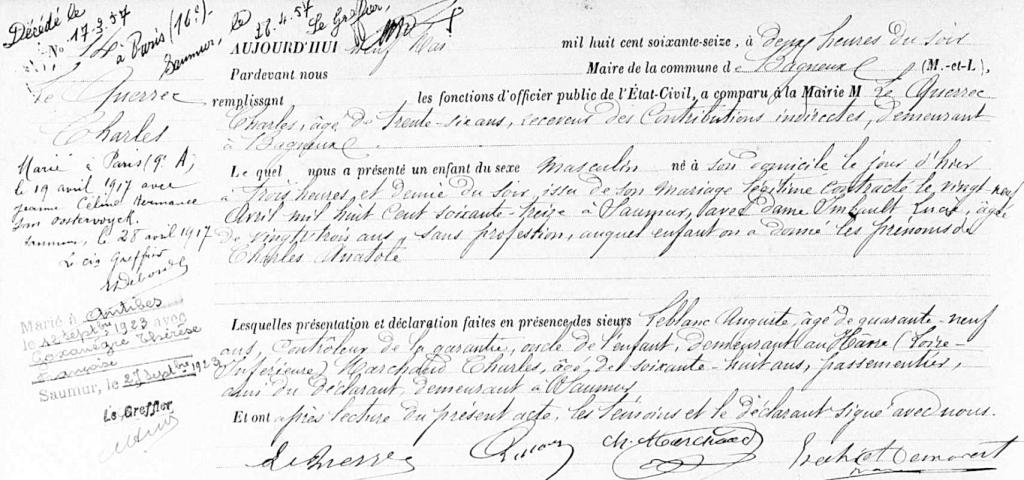 Décédé le
17.3.57
à Paris (16e).
Saumur, le 26.4.57
Le Greffier,
No 14
Le Querrec
Charles
Marié à Paris (9e A)
le 19 avril 1917 avec
Jeanne Céline Hermance
Saumur, le 28 avril 1917
Le Greffier
Marié à Antibes
le 12 septbre 1923 avec
Thérèse
Françoise
Saumur, le 27 Septbre 1923
Le Greffier
AUJOURD'HUI neuf Mai mil huit cent soixante-seize, à deux heures du soir
Pardevant nous Maire de la commune de Bagneux (M.-et-L.),
remplissant les fonctions d'officier public de l'État-Civil, a comparu à la Mairie M Le Querrec
Charles, âgé de trente-six ans, receveur des Contributions indirectes, demeurant
à Bagneux.
Lequel nous a présenté un enfant du sexe masculin né à son domicile le jour d'hier
à trois heures et demie du soir, issu de son mariage légitime contracté le vingt-neuf
Avril mil huit cent soixante-treize à Saumur, avec dame Imbault Lucie, âgée
de vingt-trois ans, sans profession, auquel enfant on a donné les prénoms de
Charles Anatole
Lesquelles présentation et déclaration faites en présence des sieurs Leblanc Auguste, âgé de quarante-neuf
ans, Contrôleur de la garantie, oncle de l'enfant, demeurant au Havre (Loire-
Inférieure) Marchand Charles, âgé de soixante-huit ans, passementier,
ami du déclarant, demeurant à Saumur
Et ont après lecture du présent acte, les témoins et le déclarant signé avec nous.
Le Querrec
Ch. Marchand